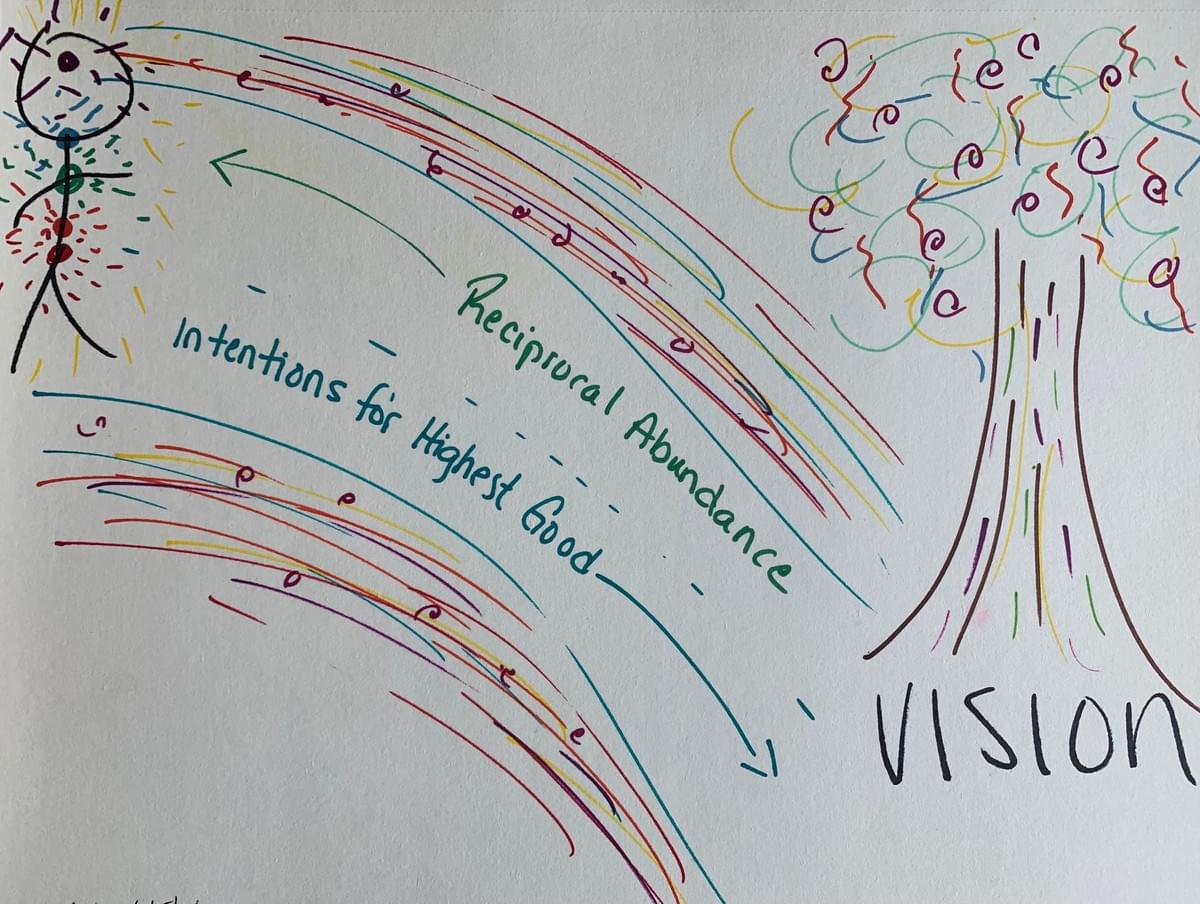 Reciprocal Abundance
Intentions for Highest Good
VISION